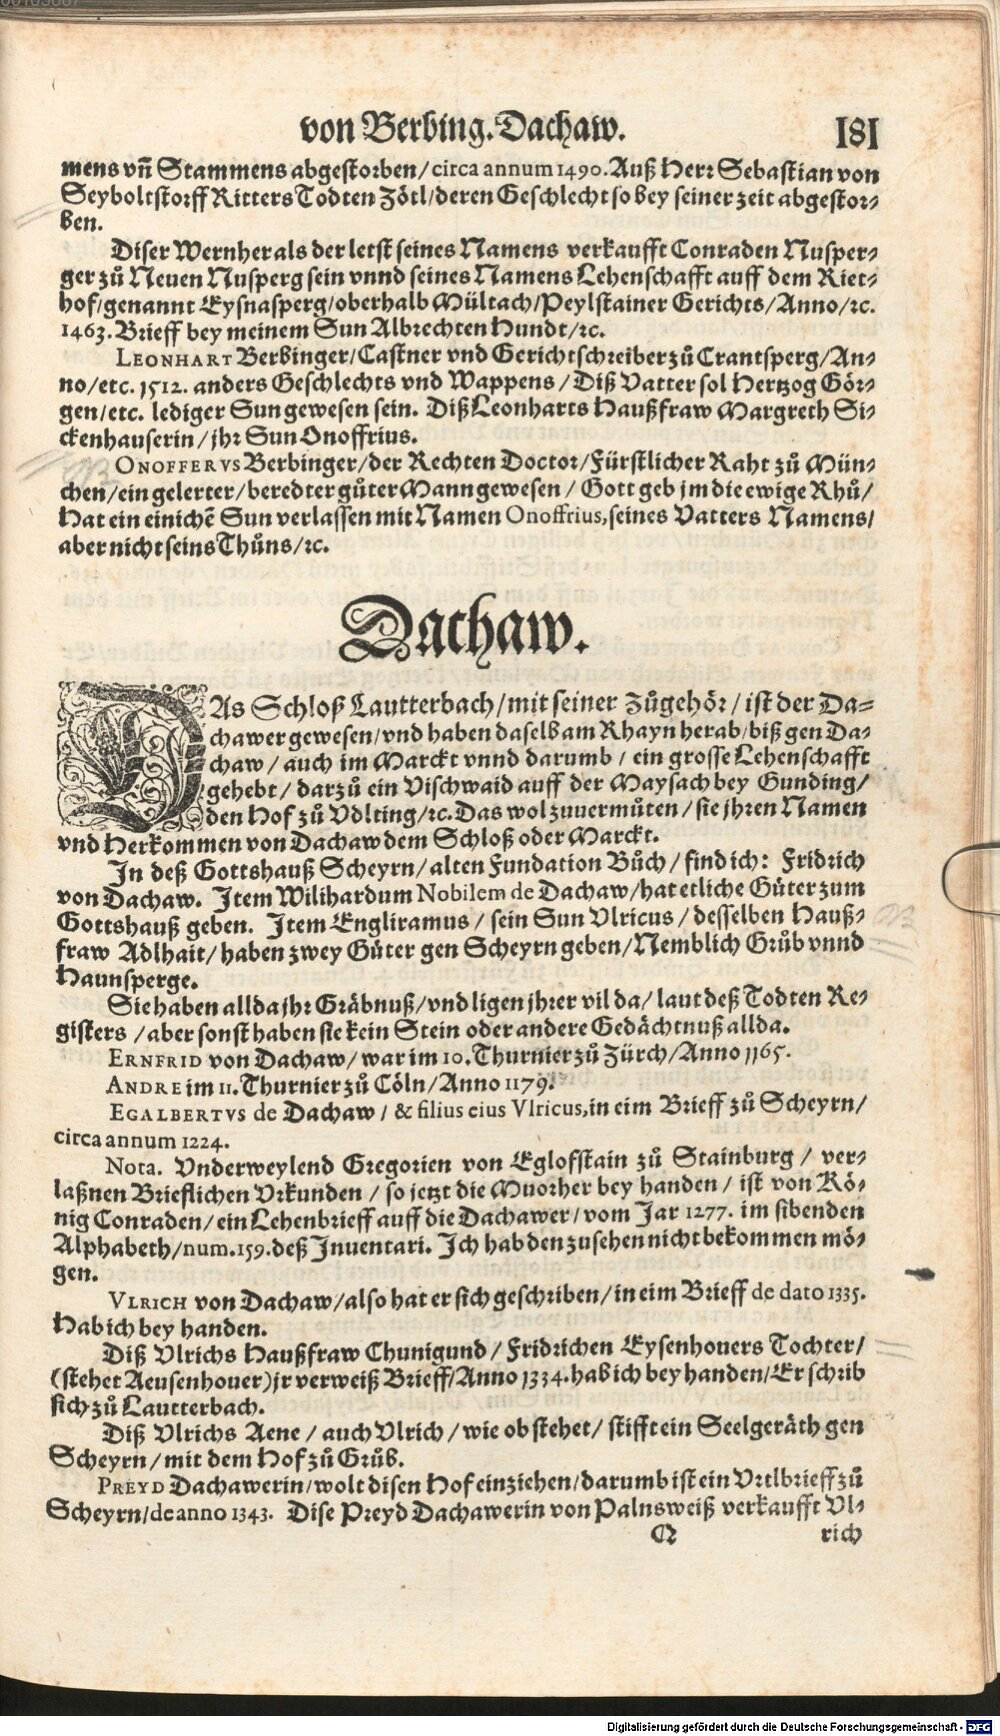 von Berbing. Dachaw. 181
mens vñ Stammens abgestorben / circa annum 1490. Auß Herr Sebastian von
Seyboltstorff Ritters Todten Zötl / deren Geschlecht so bey seiner zeit abgestor⸗
ben.
Diser Wernher als der letst seines Namens verkaufft Conraden Nusper⸗
ger zů Neuen Nusperg sein vnnd seines Namens Lehenschafft auff dem Riet⸗
hof / genannt Eysnasperg / oberhalb Mültach / Peylstainer Gerichts / Anno / ꝛc.
1463. Brieff bey meinem Sun Albrechten Hundt / ꝛc.
LEONHART Berbinger / Castner vnd Gerichtschreiber zů Crantsperg / An⸗
no / etc. 1512. anders Geschlechts vnd Wappens / Diß Vatter sol Hertzog Gör⸗
gen / etc. lediger Sun gewesen sein. Diß Leonharts Haußfraw Margreth Si⸗
ckenhauserin / jhr Sun Onoffrius.
ONOFFERVS Berbinger / der Rechten Doctor / Fürstlicher Raht zů Mün⸗
chen / ein gelerter / beredter gůter Mann gewesen / Gott geb jm die ewige Rhů /
Hat ein einichē Sun verlassen mit Namen Onoffrius, seines Vatters Namens /
aber nicht seins Thůns / ꝛc.
Dachaw.
DAs Schloß Lautterbach / mit seiner zůgehör / ist der Da⸗
chawer gewesen / vnd haben daselb am Rhayn herab / biß gen Da⸗
chaw / auch im Marckt vnnd darumb / ein grosse Lehenschafft
gehebt / darzů ein Vischwaid auff der Maysach bey Gunding /
den Hof zů Vdlting / ꝛc. Das wol zuuermůten / sie jhren Namen
vnd Herkommen von Dachaw dem Schloß oder Marckt.
In deß Gottshauß Scheyrn / alten Fundation Bůch / find ich: Fridrich
von Dachaw. Item Wilihardum Nobilem de Dachaw / hat etliche Güter zum
Gottshauß geben. Item Engliramus / sein Sun Vlricus / desselben Hauß⸗
fraw Adlhait / haben zwey Güter gen Scheyrn geben / Nemblich Grůb vnnd
Haunsperge.
Sie haben allda jhr Gräbnuß / vnd ligen jhrer vil da / laut deß Todten Re⸗
gisters / aber sonst haben sie kein Stein oder andere Gedächtnuß allda.
ERNFRID von Dachaw / war im 10. Thurnier zů Zürch / Anno 1165.
ANDRE im 11. Thurnier zů Cöln / Anno 1179.
EGALBERTVS de Dachaw / & filius eius Vlricus, in eim Brieff zů Scheyrn /
circa annum 1224.
Nota. Vnderweylend Gregorien von Eglofstain zů Stainburg / ver⸗
laßnen Brieflichen Vrkunden / so jetzt die Muorher bey handen / ist von Kö⸗
nig Conraden / ein Lehenbrieff auff die Dachawer / vom Jar 1277. im sibenden
Alphabeth / num. 159. deß Inuentari. Ich hab den zusehen nicht bekommen mö⸗
gen.
VLRICH von Dachaw / also hat er sich geschriben / in eim Brieff de dato 1335.
Hab ich bey handen.
Diß Vlrichs Haußfraw Chunigund / Fridrichen Eysenhouers Tochter /
(stehet Aeusenhouer) jr verweiß Brieff / Anno 1334. hab ich bey handen / Er schrib
sich zů Lautterbach.
Diß Vlrichs Aene / auch Vlrich / wie ob stehet / stifft ein Seelgeräth gen
Scheyrn / mit dem Hof zů Grůb.
PREYD Dachawerin / wolt disen Hof einziehen / darumb ist ein Vrtlbrieff zů
Scheyrn / de anno 1343. Dise Preyd Dachawerin von Palnsweiß verkaufft Vl⸗
Q rich
Digitalisierung gefördert durch die Deutsche Forschungsgemeinschaft - DFG